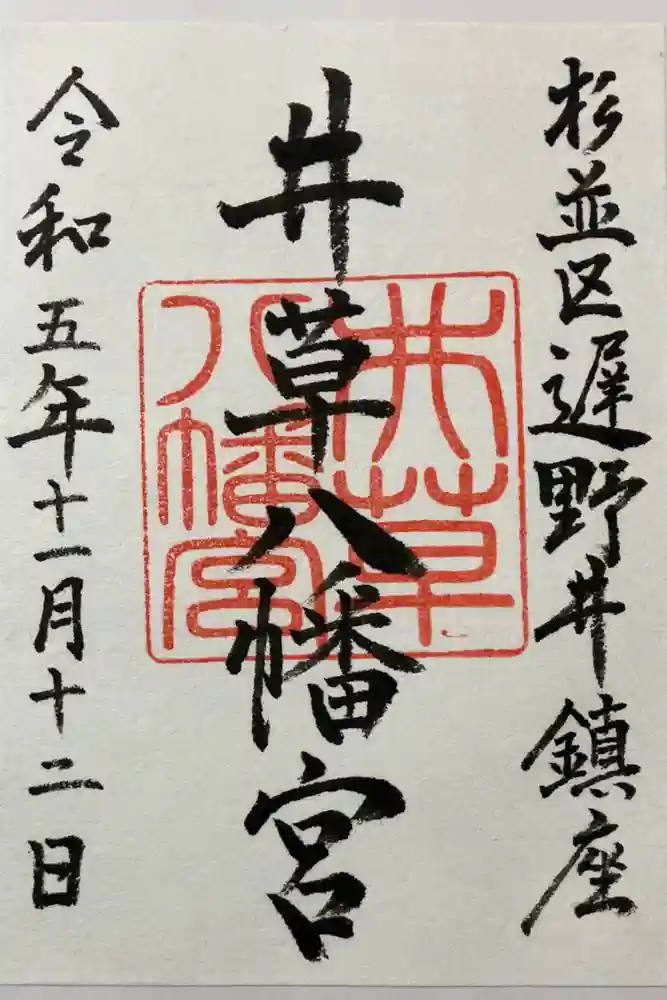 杉並区遅野井鎮座
井草八幡宮
井草
八幡宮
令和五年十一月十二日